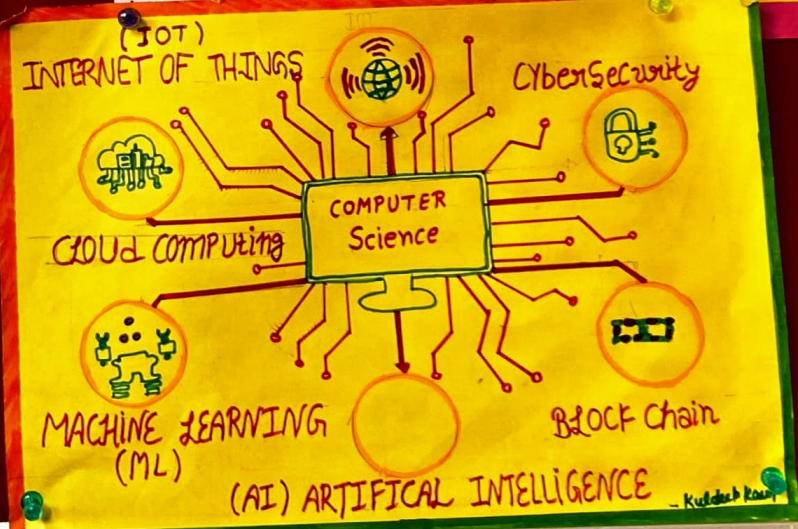 (IOT)
INTERNET OF THINGS
IOT
CYberSecurity
COMPUTER
Science
CLOUd COMPUting
MACHiNE LEARNING
(ML)
BLOCK Chain
(AI) ARTIFICAL INTELLiGENCE
- Kuldeep Kaur